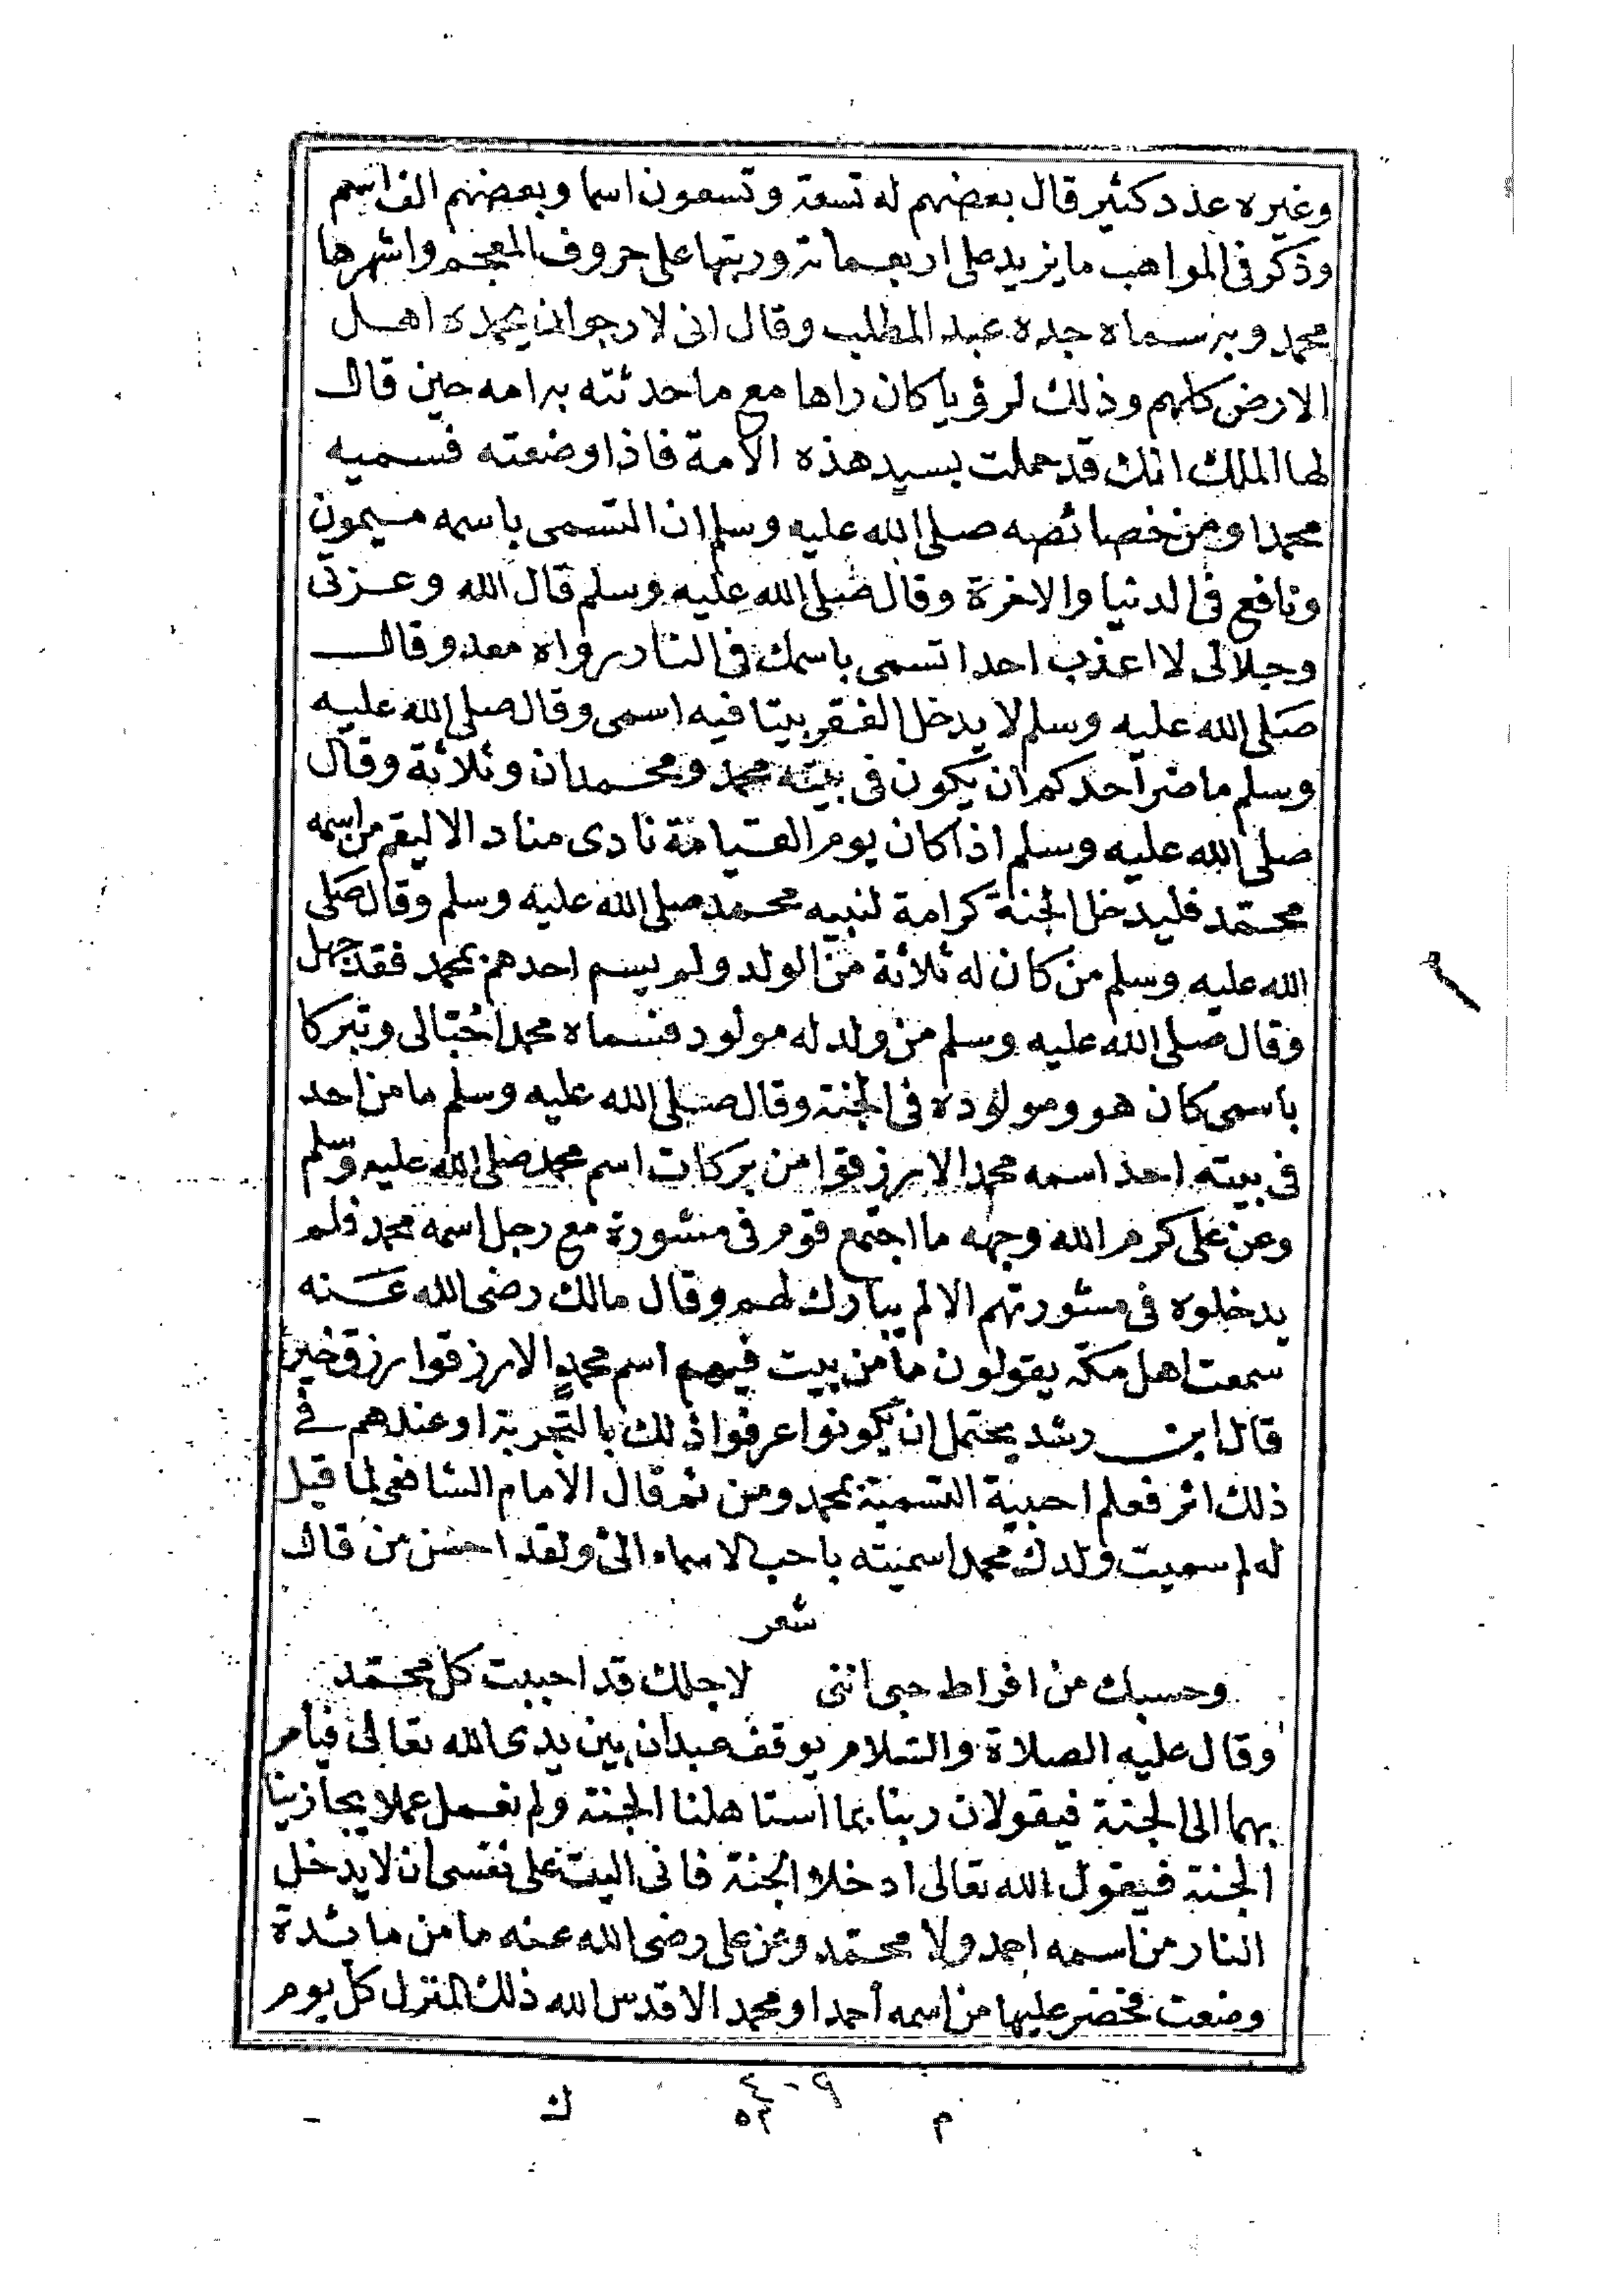 وغيره عدد كثير قال بعضهم له تسعة وتسعون اسما وبعضهم الف اسم
وذكر فى المواهب ما يزيد على اربعمائة ورتبها على حروف المعجم واشهرها
محمد وبه سماه جده عبد المطلب وقال انى لارجوان يحمده اهل
الارض كلهم وذلك لرؤيا كان راها مع ما حدثته به امه حين قال
لها الملك انك قد حملت بسيد هذه الامة فاذا وضعته فسميه
محمدا ومن خصائصه صلى الله عليه وسلم ان التسمى باسمه ميمون
ونافع فى الدنيا والاخرة وقال صلى الله عليه وسلم قال الله وعزتى
وجلالى لا اعذب احدا تسمى باسمك فى النار رواه معد وقال
صلى الله عليه وسلم لا يدخل الفقر بيتا فيه اسمى وقال صلى الله عليه
وسلم ما ضر احدكم ان يكون فى بيته محمد ومحمدان وثلاثة وقال
صلى الله عليه وسلم اذا كان يوم القيامة نادى مناد الا ليقم من اسمه
محمد فليدخل الجنة كرامة لنبيه محمد صلى الله عليه وسلم وقال صلى
الله عليه وسلم من كان له ثلاثة من الولد ولم يسم احدهم بمحمد فقد جهل
وقال صلى الله عليه وسلم من ولد له مولود فسماه محمدا حُبّا لى وتبركا
باسمى كان هو ومولوده فى الجنة وقال صلى الله عليه وسلم ما من احد
فى بيته احد اسمه محمد الا رزقوا من بركات اسم محمد صلى الله عليه وسلم
وعن على كرم الله وجهه ما اجتمع قوم فى مشورة مع رجل اسمه محمد فلم
يدخلوه فى مشورتهم الا لم يبارك لهم وقال مالك رضى الله عنه
سمعت اهل مكة يقولون ما من بيت فيهم اسم محمدٍ الا رزقوا رزق خير
قال ابن رشد يحتمل ان يكونوا عرفوا ذلك بالتجربة او عندهم فى
ذلك اثر فعلم احبية التسمية بمحمد ومن ثم قال الامام الشافعى لما قيل
له لم سميت ولدك محمدا سميته باحب الاسماء الىّ ولقد احسن من قال
شعر
وحسبك من افراط حبى اننى لاجلك قد احببت كل محمّد
وقال عليه الصلاة والسّلام يوقف عبدان بين يدى الله تعالى فيامر
بهما الى الجنة فيقولان ربنا بما استاهلنا الجنة ولم نعمل عملا يجازينا
الجنة فيقول الله تعالى ادخلا الجنة فانى اليت على نفسى ان لا يدخل
النار من اسمه احمد ولا محمّد وعن على رضى الله عنه ما من مائدة
وضعت فحضر عليها من اسمه أحمد او محمد الا قدس الله ذلك المنزل كل يوم